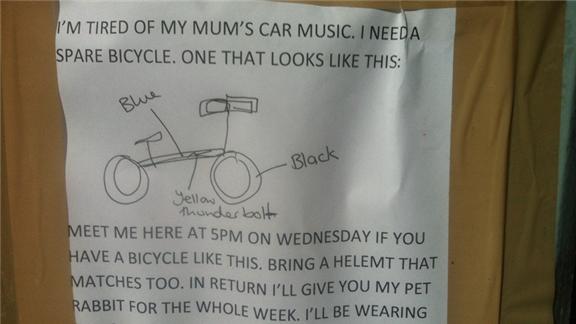 I'M TIRED OF MY MUM'S CAR MUSIC. I NEED A
SPARE BICYCLE. ONE THAT LOOKS LIKE THIS:
Blue
Black
Yellow
thunderbolt
MEET ME HERE AT 5PM ON WEDNESDAY IF YOU
HAVE A BICYCLE LIKE THIS. BRING A HELEMT THAT
MATCHES TOO. IN RETURN I'LL GIVE YOU MY PET
RABBIT FOR THE WHOLE WEEK. I'LL BE WEARING